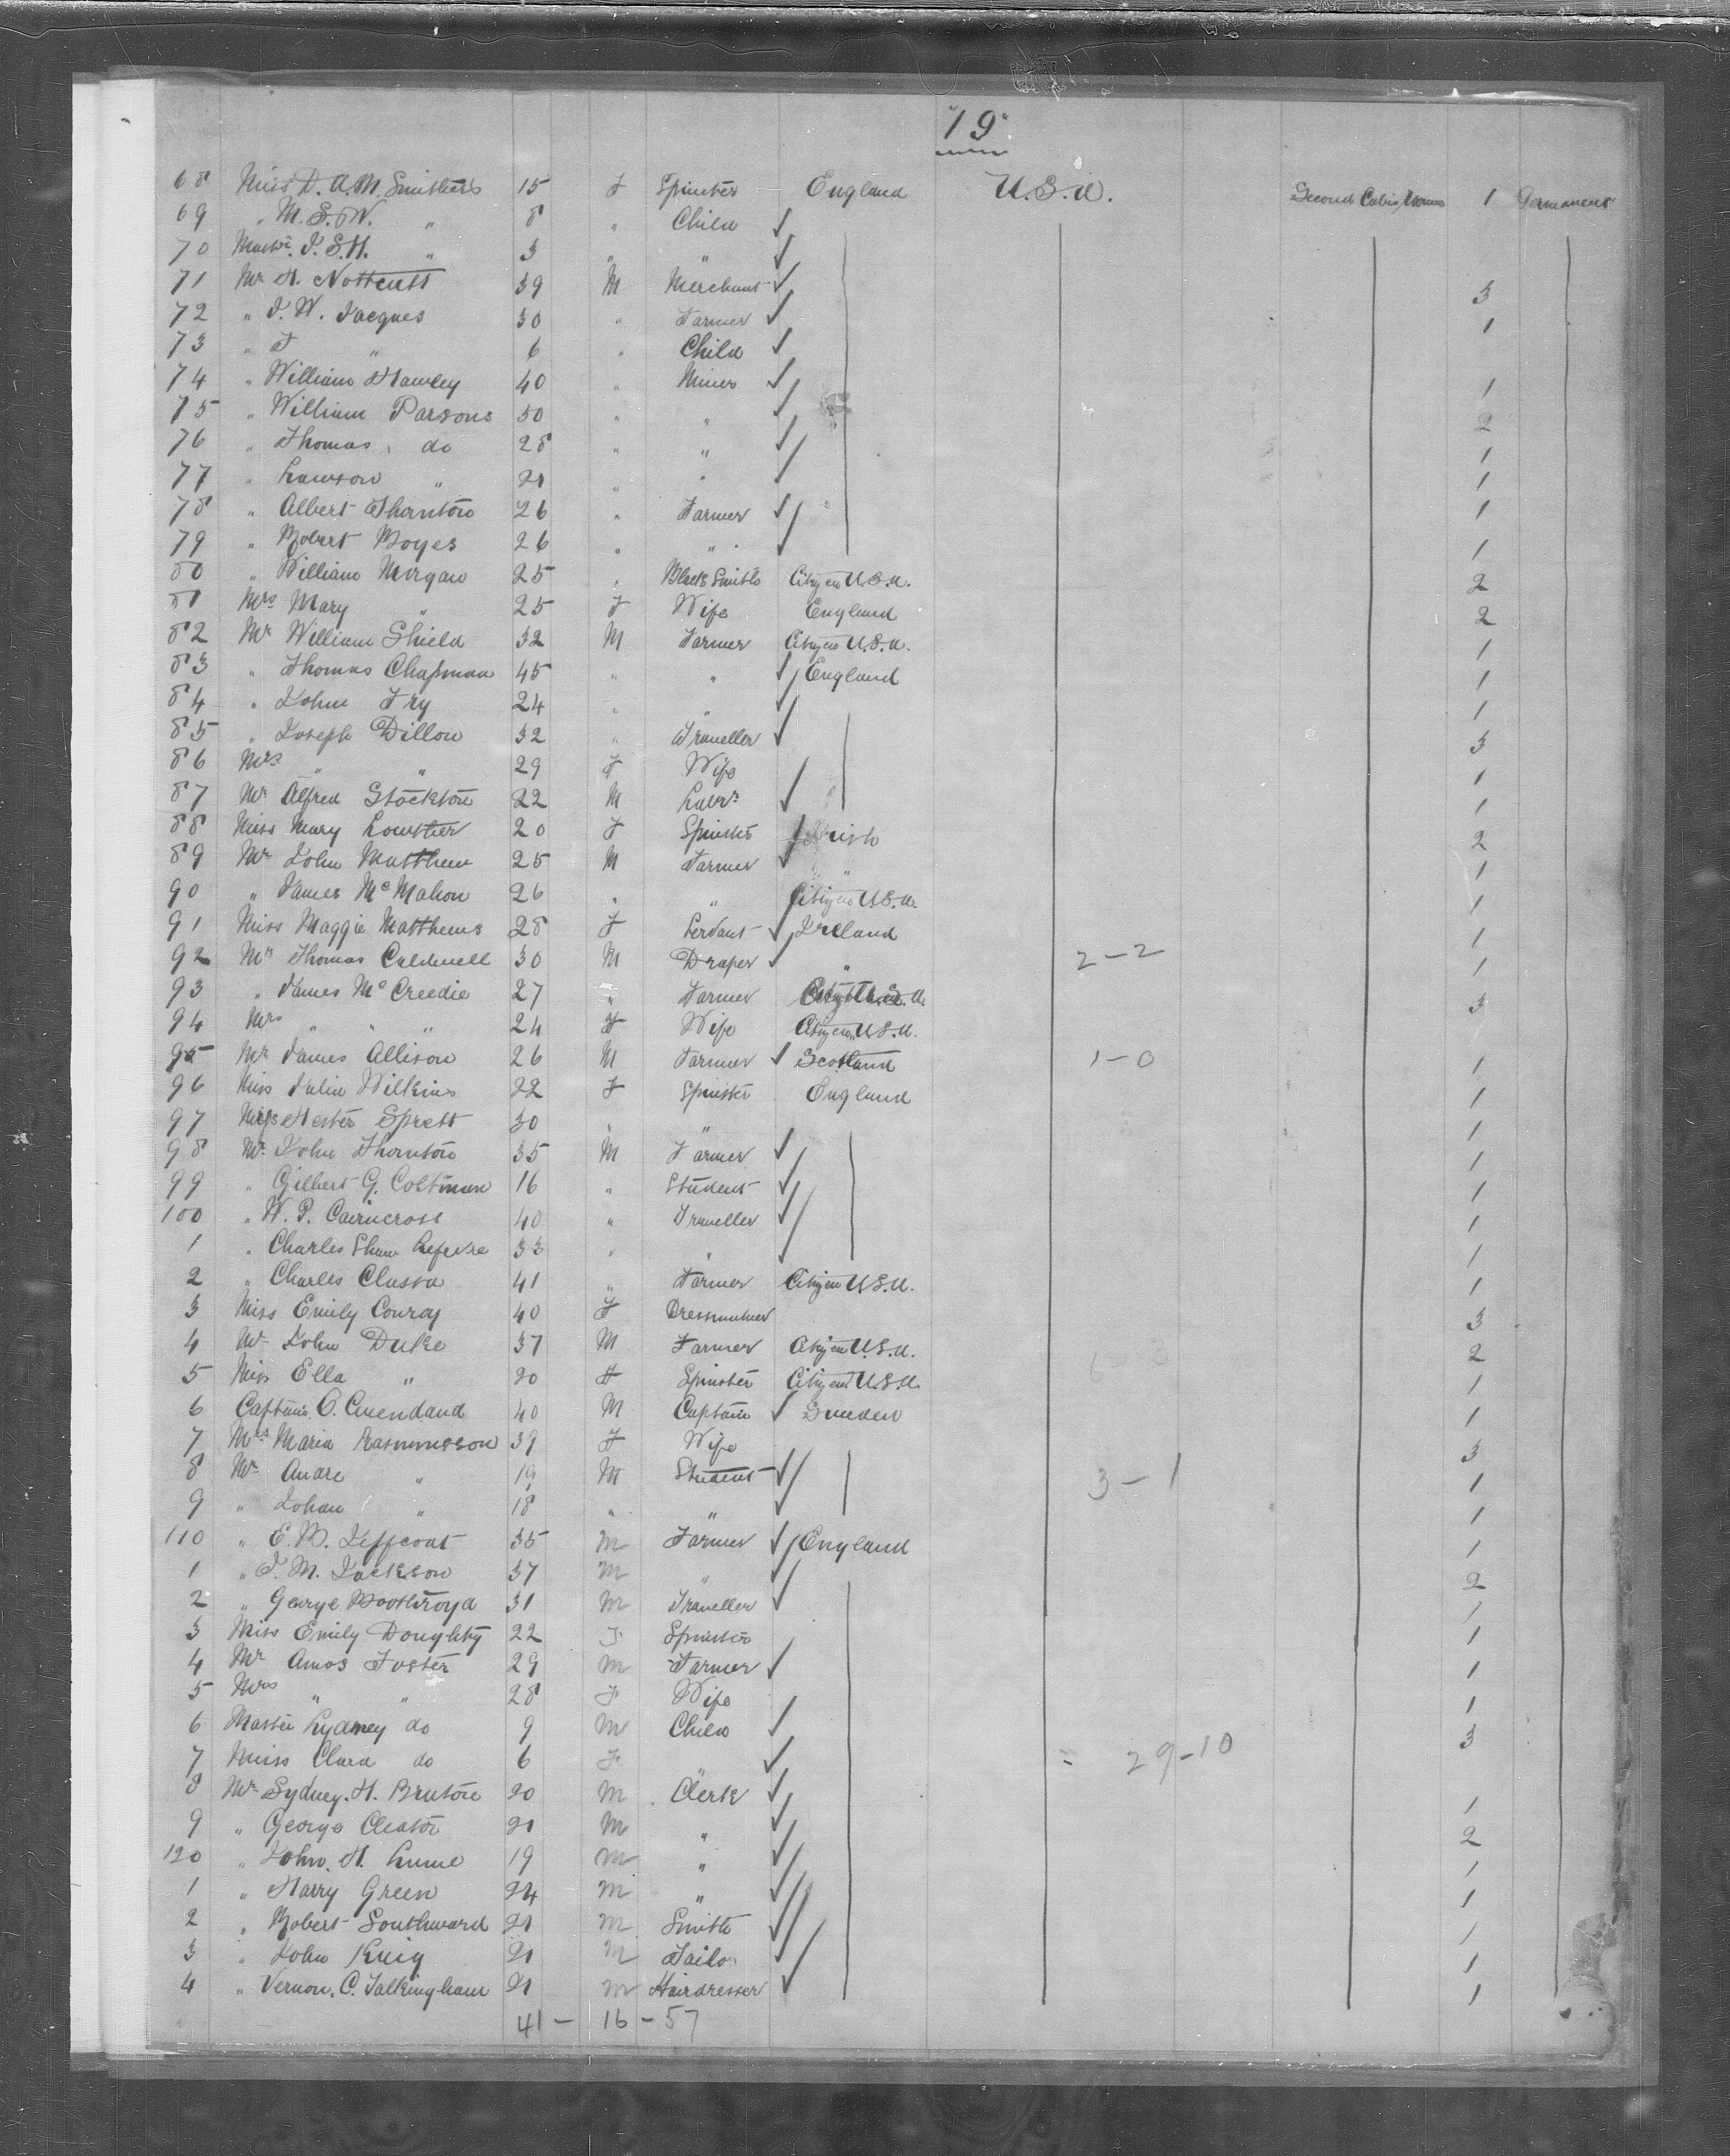 "19"
68 Miss D. A. M. Smithers 15 F Spinster England U.S.A. Second Cabin 1 Permanent
69 " M. S. W. " 8 " Child
70 Mastr. J. S. H. " 3 " "
71 Mr H. Nottcutt 39 M Merchant 3
72 " J. W. Jacques 30 " Farmer 1
73 " J " 6 " Child
74 " William Hawley 40 " Miner 1
75 " William Parsons 50 " " 2
76 " Thomas do 28 " " 1
77 " Lawson " 21 " " 1
78 " Albert Thornton 26 " Farmer 1
79 " Robert Boyes 26 " " 1
80 " William Morgan 25 " Black Smith Citizen U.S.A. 2
81 Mrs Mary " 25 F Wife England 2
82 Mr William Shield 32 M Farmer Citizen U.S.A. 1
83 " Thomas Chapman 45 " " England 1
84 " John Fry 24 " " 1
85 " Joseph Dillon 32 " Traveller 3
86 Mrs " " 29 F Wife 1
87 Mr Alfred Stockton 22 M Labr. 1
88 Miss Mary Lowther 20 F Spinster Irish 2
89 Mr John Matthew 25 M Farmer " 1
90 " James McMahon 26 " " Citizen U.S.A. 1
91 Miss Maggie Matthews 28 F Servant Ireland 1
92 Mr Thomas Caldwell 30 M Draper " 2-2 1
93 " James McCreedie 27 " Farmer Citizen U.S.A. 3
94 Mrs " " " 24 F Wife Citizen U.S.A.
95 Mr James Allison 26 M Farmer Scotland 1-0 1
96 Miss Julia Wilkins 22 F Spinster England 1
97 Hester Sprett 30 " " 1
98 Mr John Thornton 35 M Farmer 1
99 " Gilbert G. Coltman 16 " Student 1
100 " W. P. Cairncross 40 " Traveller 1
1 " Charles Shaw Lefevre 33 " " 1
2 " Charles Classa 41 " Farmer Citizen U.S.A. 1
3 Miss Emily Conroy 40 F Dressmaker 3
4 Mr John Duke 37 M Farmer Citizen U.S.A. 6-3 2
5 Miss Ella " 20 F Spinster Citizen U.S.A. 1
6 Captain O. 40 M Captain Sweden 1
7 Mrs Maria Rasmusson 39 F Wife 3
8 Mr Andre " 19 M Student 3-1 1
9 " Johan " 18 " " 1
110 " E. B. Jeffcoat 35 M Farmer England 1
1 " J. M. Jackson 37 M " 2
2 " George Boothroyd 31 M Traveller 1
3 Miss Emily Doughty 22 F Spinster 1
4 Mr Amos Foster 29 M Farmer 1
5 Mrs " " 28 F Wife 1
6 Master Sydney do 9 M Child 3
7 Miss Clara do 6 F " = 29-10
8 Mr Sydney. H. Bruton 20 M Clerk 1
9 " George Cleator 21 M " 2
120 " John. H. Lume 19 M " 1
1 " Harry Green 24 M " 1
2 " Robert Southward 21 M Smith 1
3 " John 21 M Tailor 1
4 " Vernon. C. Talkingham 21 M Hairdresser 1
41 - 16 - 57